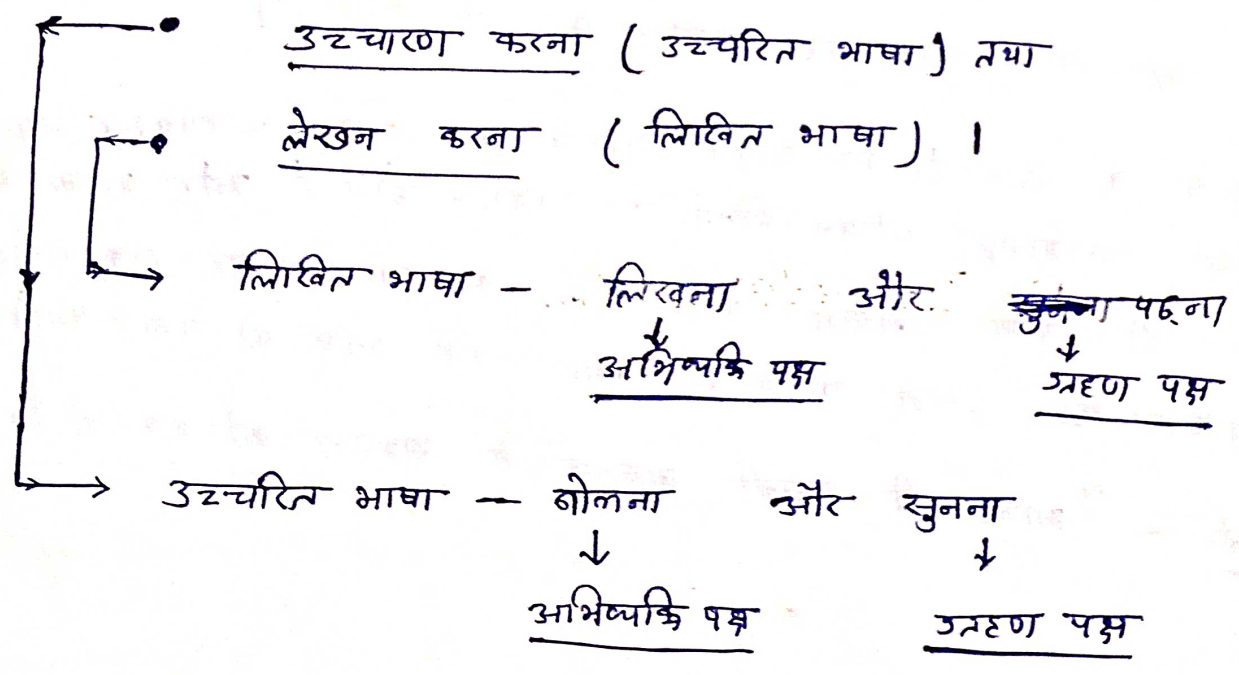 उच्चारण करना ( उच्चरित भाषा ) तथा
लेखन करना ( लिखित भाषा ) ।
लिखित भाषा - लिखना और सुनना पढ़ना
अभिव्यक्ति पक्ष ग्रहण पक्ष
उच्चरित भाषा - बोलना और सुनना
अभिव्यक्ति पक्ष ग्रहण पक्ष